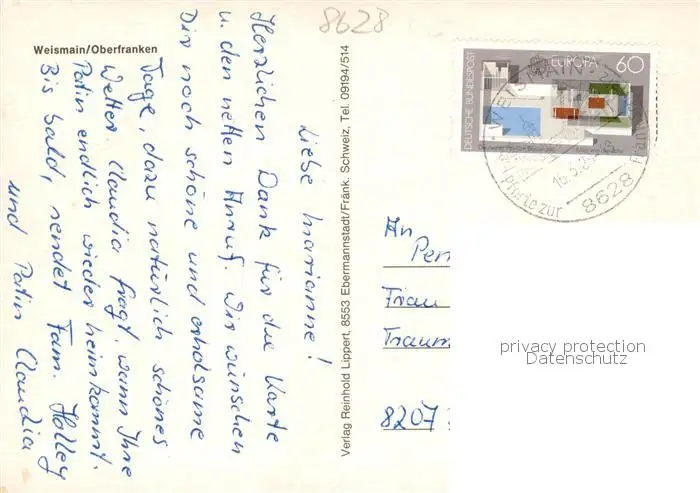 8628
Weismain/Oberfranken
Liebe Marianne!
Herzlichen Dank für die Karte
u. den netten Anruf. Wir wünschen
Dir noch schöne und erholsame
Tage, dazu natürlich schönes
Wetter. Claudia fragt, wann Ihre
Patin endlich wieder heimkommt.
Bis bald, sendet Fam. Holley
und Patin Claudia
Verlag Reinhold Lippert, 8553 Ebermannstadt/Fränk. Schweiz, Tel. 09194/514
DEUTSCHE BUNDESPOST
EUROPA 60
WEISMAIN
Pforte zur
8628
An
Pen
Frau
Traum
8207
privacy protection
Datenschutz